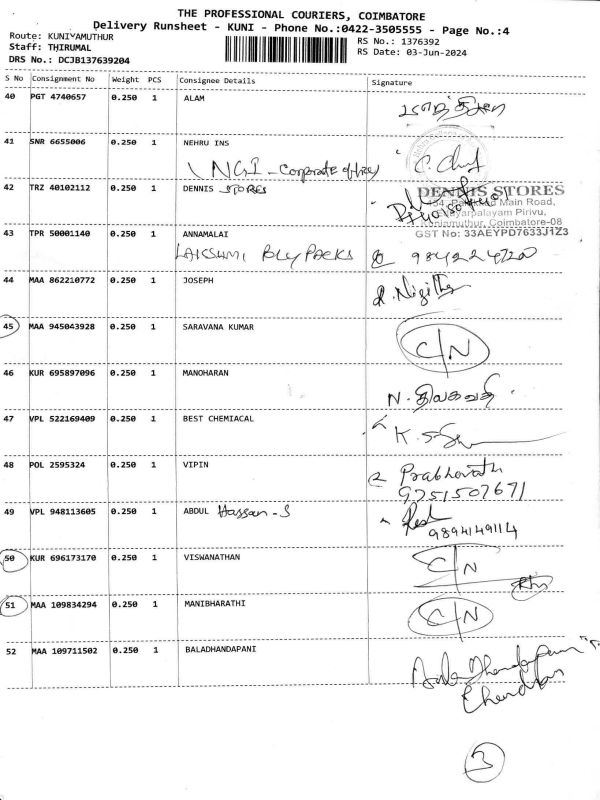 THE PROFESSIONAL COURIERS, COIMBATORE
Delivery Runsheet - KUNI - Phone No.:0422-3505555 - Page No.:4
Route: KUNIYAMUTHUR
RS No.: 1376392
Staff: THIRUMAL
RS Date: 03-Jun-2024
DRS No.: DCJB137639204
S No Consignment No Weight PCS Consignee Details Signature
40 PGT 4740657 0.250 1 ALAM
41 SNR 6655006 0.250 1 NEHRU INS
NGI - Corporate office
42 TRZ 40102112 0.250 1 DENNIS STORES
DENNIS STORES
Main Road,
Pirivu,
Kuniamuthur, Coimbatore-08
GST No: 33AEYPD7633J1Z3
43 TPR 50001140 0.250 1 ANNAMALAI
LAKSHMI POLY PACKS 9842224720
44 MAA 862210772 0.250 1 JOSEPH
45 MAA 945043928 0.250 1 SARAVANA KUMAR
C/N
46 KUR 695897096 0.250 1 MANOHARAN
N. திலகவதி
47 VPL 522169409 0.250 1 BEST CHEMIACAL
48 POL 2595324 0.250 1 VIPIN
Prabhavathi
9751507671
49 VPL 948113605 0.250 1 ABDUL Hassan - S
9894149114
50 KUR 696173170 0.250 1 VISWANATHAN
C/N
51 MAA 109834294 0.250 1 MANIBHARATHI
C/N
52 MAA 109711502 0.250 1 BALADHANDAPANI
3